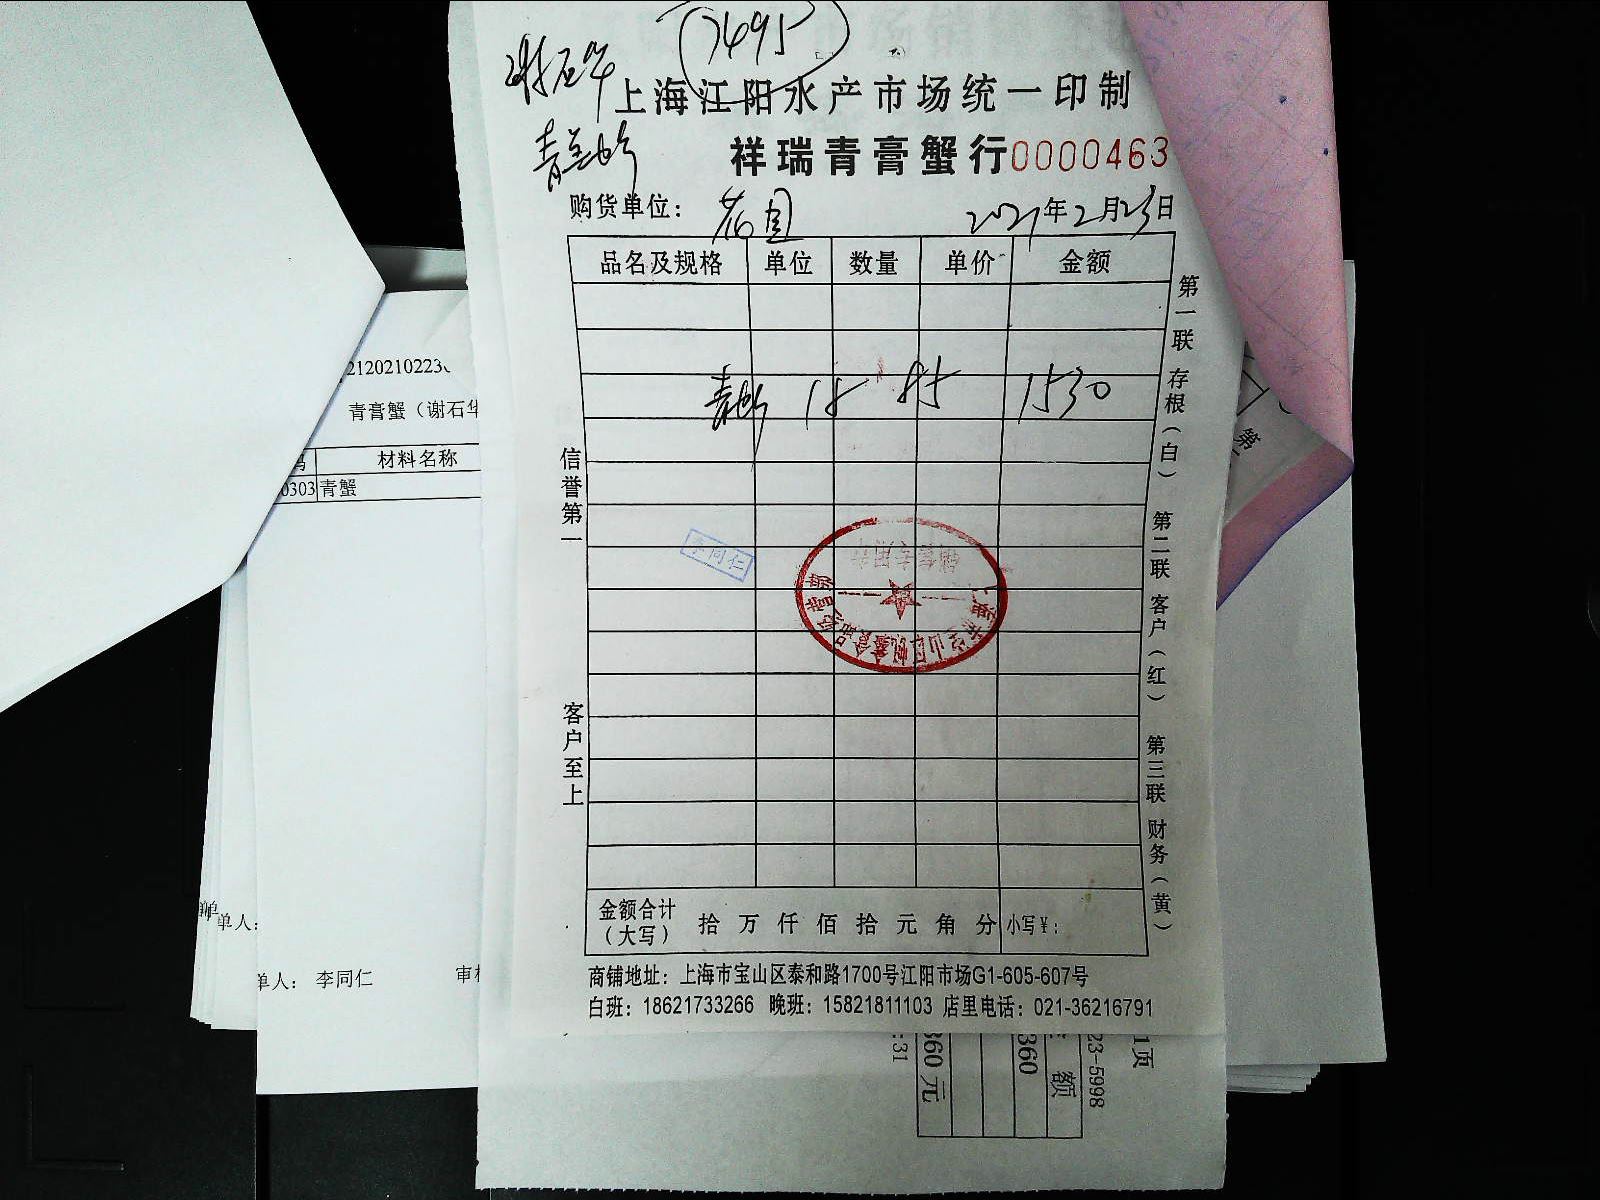 谢石华
7495
上海江阳水产市场统一印制
青膏蟹
祥瑞青膏蟹行0000463
购货单位： 花园 2021年2月23日
品名及规格 单位 数量 单价 金额
青蟹 18 85 1530
信誉第一
客户至上
第一联 存根（白） 第二联 客户（红） 第三联 财务（黄）
李同仁
销售专用章
金额合计（大写） 拾 万 仟 佰 拾 元 角 分 小写￥：
商铺地址：上海市宝山区泰和路1700号江阳市场G1-605-607号
白班：18621733266 晚班：15821811103 店里电话：021-36216791
青膏蟹（谢石华
材料名称
0303 青蟹
单人：
单人： 李同仁
第
1页
23-5998
额
360
360元
:31